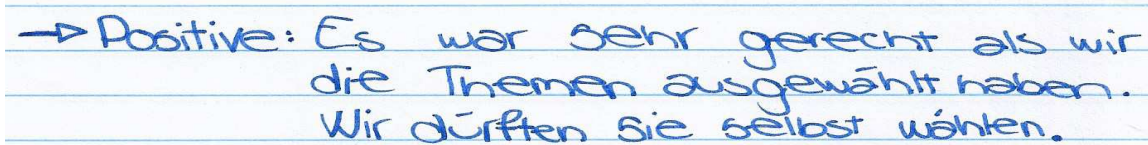 → Positive: Es war sehr gerecht als wir
die Themen ausgewählt haben.
Wir dürften sie selbst wählen.